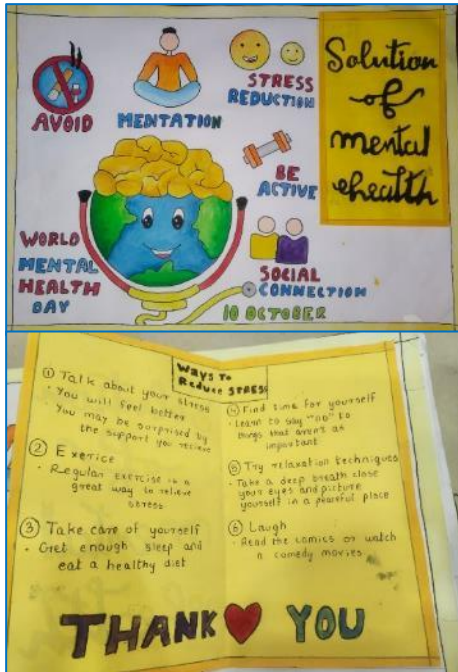 Solution
of
mental
ehealth
AVOID
MENTATION
STRESS
REDUCTION
BE
ACTIVE
WORLD
MENTAL
HEALTH
DAY
SOCIAL
CONNECTION
10 OCTOBER
WAYS TO
REDUCE STRESS
① Talk about your stress
• You will feel better
• You may be surprised by
the support you
② Exerice
• Regular exercise is a
great way to relieve
stress
③ Take care of yourself
• Get enough sleep and
eat a healthy diet
④ Find time for yourself
• Learn to say "no" to
things that aren't as
important
⑤ Try relaxation techniques
• Take a deep breath close
your eyes and picture
yourself in a peaceful place
⑥ Laugh
• Read the comics or watch
a comedy movies
THANK YOU